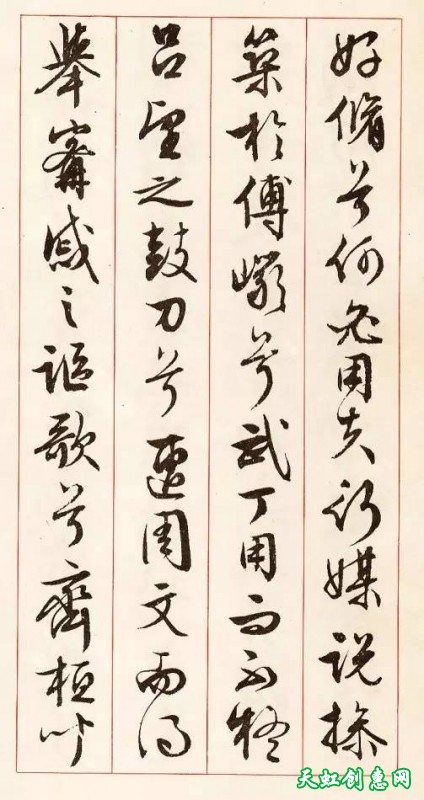 好脩兮何必用夫行媒說操
築於傅巖兮武丁用而不疑
呂望之鼓刀兮遭周文而得
舉甯戚之謳歌兮齊桓以
天虹创惠网